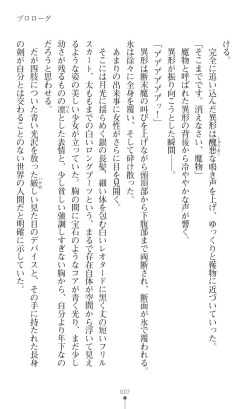 プロローグ
ける。
完全に追い込んだ異形は醜悪な鳴き声を上げ、ゆっくりと獲物に近づいていった。
「そこまでです。消えなさい、魔物」
魔物と呼ばれた異形の背後から冷ややかな声が響く。
異形が振り向こうとした瞬間――。
「アアアアアアッ!」
異形は断末魔の叫びを上げながら頭頂部から下腹部まで両断され、断面が氷で覆われる。
氷は徐々に全身を覆い、そして砕け散った。
あまりの出来事に女性がさらに目を見開く。
そこには月光に揺らめく銀の長髪、細い体を包む白いレオタードに黒く丈の短いフリル
スカート、太ももまでの白いロングブーツという、まるで存在自体が空間から浮いて見え
るような姿の美しい少女が立っていた。胸の間に宝石のようなコアが青く光り、まだ少し
幼さが残るものの凛とした表情と、少し貧しい強調しすぎない胸から、自分より年下なの
だろうと思わせる。
だが四肢についた青い光沢を放った厳しい見た目のデバイスと、その手に持たれた長身
の剣が自分とは交わることのない世界の人間だと明確に示していた。
007